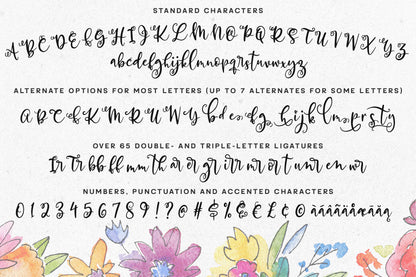 STANDARD CHARACTERS
ABCDEFGHIJKLMNOPQRSTUVWXYZ
abcdefghijklmnopqrstuvwxyz
ALTERNATE OPTIONS FOR MOST LETTERS (UP TO 7 ALTERNATES FOR SOME LETTERS)
A B C K M R U W Y b d e g h i j k l m p r s t y
OVER 65 DOUBLE- AND TRIPLE-LETTER LIGATURES
Ir Tr bb ff mm th or or gr irr wr or t unr en wr
NUMBERS, PUNCTUATION AND ACCENTED CHARACTERS
0 1 2 3 4 5 6 7 8 9 ! ? @ # $ % & € £ ¢ © àáâãäåæāą